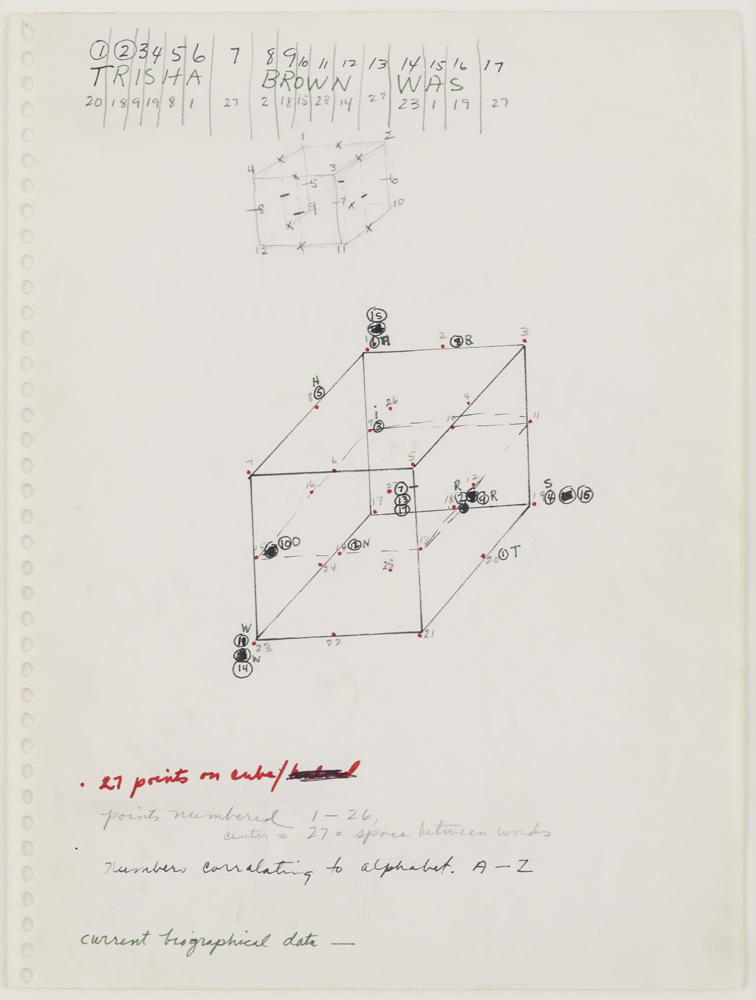 ① ② 3 4 5 6 7 8 9 10 11 12 13 14 15 16 17
TRISHA BROWN WAS
20 18 9 19 8 1 27 2 18 15 23 14 27 23 1 19 27
1 2
4 3
5 6
8 9 7 10
12 11
⑮
1 ⑥ A 2 ⑧ B 3
H
8 ⑤ i 26 4
9 ③ 10 11
7 6 5
16 27 ⑦ 12 R S
⑬ 18 ② ⑨ R 19 ④ ⑯
17 ⑰
15 ⑩ O 14 ⑫ N 13 20 ① T
24 25
W
⑪ 23 22 21
W
⑭
· 27 points on cube/
points numbered 1 – 26,
center = 27 = space between words
numbers corralating to alphabet. A – Z
current biographical data —